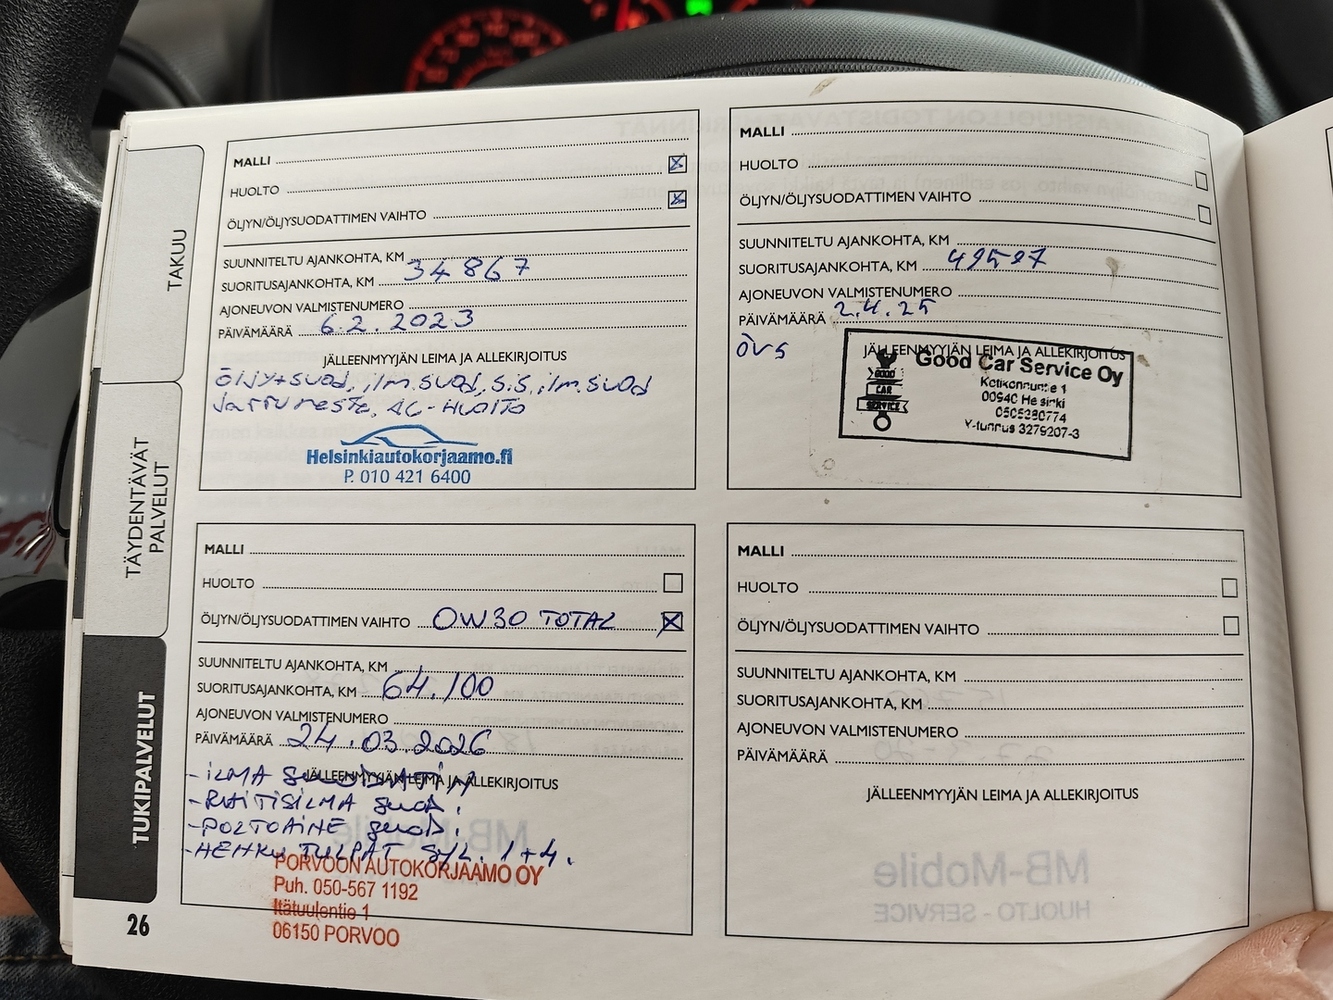 TAKUU
TÄYDENTÄVÄT
PALVELUT
TUKIPALVELUT
26
MALLI
HUOLTO
ÖLJYN/ÖLJYSUODATTIMEN VAIHTO
SUUNNITELTU AJANKOHTA, KM
SUORITUSAJANKOHTA, KM 34 867
AJONEUVON VALMISTENUMERO
PÄIVÄMÄÄRÄ 6.2.2023
JÄLLEENMYYJÄN LEIMA JA ALLEKIRJOITUS
ÖLJY+SUOD, ilm.SUOD, S.S, ilm.SUOD
Jarruneste, AC-HUOLTO
Helsinkiautokorjaamo.fi
P. 010 421 6400
MALLI
HUOLTO
ÖLJYN/ÖLJYSUODATTIMEN VAIHTO
SUUNNITELTU AJANKOHTA, KM
SUORITUSAJANKOHTA, KM 49597
AJONEUVON VALMISTENUMERO
PÄIVÄMÄÄRÄ 2.4.25
ÖVS
JÄLLEENMYYJÄN LEIMA JA ALLEKIRJOITUS
Good Car Service Oy
GOOD
CAR
SERVICE
00940 Helsinki
0505280774
Y-tunnus 3279207-3
MALLI
HUOLTO
ÖLJYN/ÖLJYSUODATTIMEN VAIHTO OW30 TOTAL
SUUNNITELTU AJANKOHTA, KM
SUORITUSAJANKOHTA, KM 64.100
AJONEUVON VALMISTENUMERO
PÄIVÄMÄÄRÄ 24.03.2026
JÄLLEENMYYJÄN LEIMA JA ALLEKIRJOITUS
-ILMA SUODATIN
-RAITISILMA suod.
-POLTOAINE suod.
-HEHKU TULPAT SYL. 1+4.
PORVOON AUTOKORJAAMO OY
Puh. 050-567 1192
Itätuulentie 1
06150 PORVOO
MALLI
HUOLTO
ÖLJYN/ÖLJYSUODATTIMEN VAIHTO
SUUNNITELTU AJANKOHTA, KM
SUORITUSAJANKOHTA, KM
AJONEUVON VALMISTENUMERO
PÄIVÄMÄÄRÄ
JÄLLEENMYYJÄN LEIMA JA ALLEKIRJOITUS